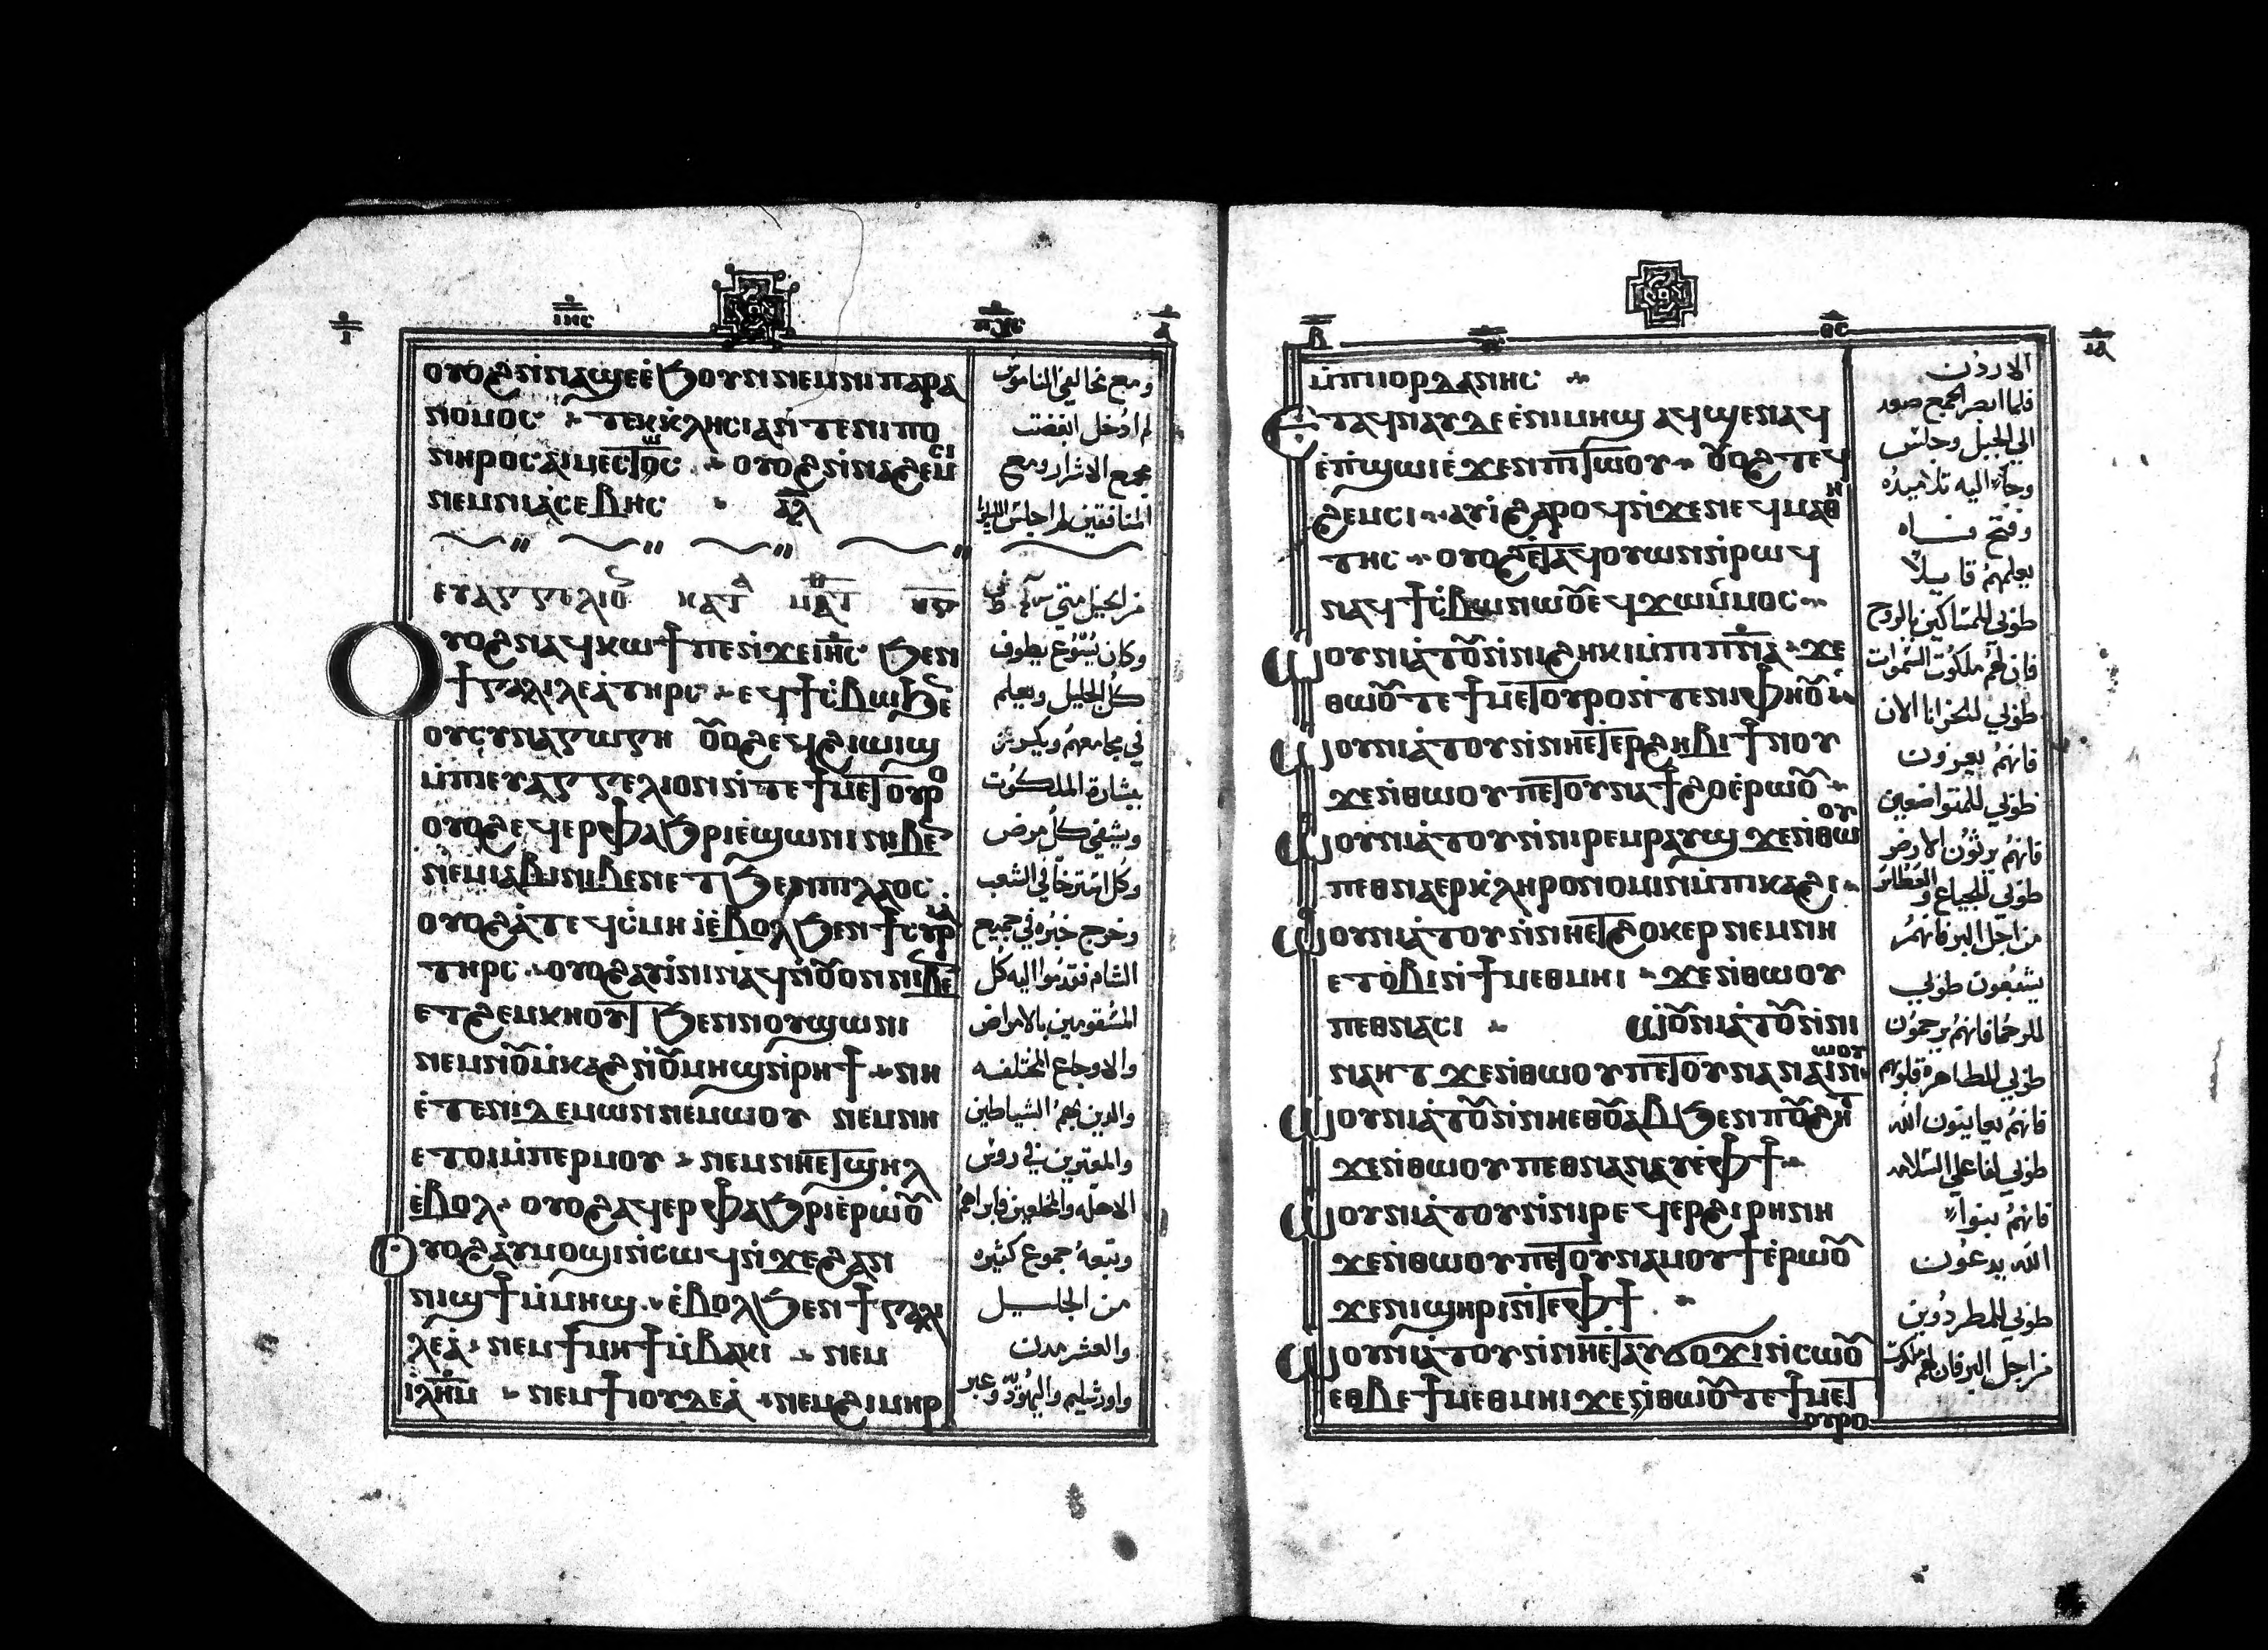 ⲓⲏⲥ ⲡⲭⲥ
ⲟⲩⲟϩ ⲛ̀ⲛⲁϣⲉ ⲉ̀ϧⲟⲩⲛ ⲛⲉⲙ ⲛⲓⲡⲁⲣⲁ
ⲛⲟⲙⲟⲥ ⲧⲉⲕⲕⲗⲏⲥⲓⲁ ⲛ̀ⲧⲉ ⲛⲓⲡⲟ
ⲛⲏⲣⲟⲥ ⲁⲓⲙⲉⲥⲧⲱⲥ ⲟⲩⲟϩ ⲛ̀ⲛⲁϩⲉⲙⲥⲓ
ⲛⲉⲙ ⲛⲓⲁ̀ⲥⲉⲃⲏⲥ ⲁⲗ
ⲉⲩⲁⲅⲅⲉⲗⲓⲟ ⲕⲁⲧ ⲙⲁⲧ
ⲟⲩⲟϩ ⲛⲁϥⲕⲱϯ ⲡⲉ ⲛ̀ϫⲉ ⲓⲏⲥ ϧⲉⲛ
ϯⲅⲁⲗⲓⲗⲉⲁ̀ ⲧⲏⲣⲥ ⲉϥϯⲥ̀ⲃⲱ ϧⲉ
ⲟⲩⲥⲩⲛⲁⲅⲱⲅⲏ ⲟⲩⲟϩ ⲉϥϩⲓⲱⲓϣ
ⲙ̀ⲡⲓⲉⲩⲁⲅⲅⲉⲗⲓⲟⲛ ⲛ̀ⲧⲉ ϯⲙⲉⲧⲟⲩⲣⲟ
ⲟⲩⲟϩ ⲉϥⲉⲣⲫⲁϧⲣⲓ ⲉ̀ϣⲱⲛⲓ ⲛⲓⲃⲉ
ⲛⲉⲙ ⲓⲁⲃⲓ ⲛⲓⲃⲉⲛ ⲉⲧϧⲉⲛ ⲡⲓⲗⲁⲟⲥ
ⲟⲩⲟϩ ⲁ̀ⲧⲉϥⲥ̀ⲙⲏ ⲓ̀ ⲉ̀ⲃⲟⲗ ϧⲉⲛ ϯⲥⲩⲣⲓⲁ
ⲧⲏⲣⲥ ⲟⲩⲟϩ ⲁⲩⲓ̀ⲛⲓ ⲛⲁϥ ⲛ̀ⲟⲩⲟⲛ ⲛⲓⲃⲉ
ⲉⲧϩⲉⲙⲕⲏⲟⲩⲧ ϧⲉⲛ ⲛⲟⲩϣⲱⲛⲓ
ⲛⲉⲙ ⲛⲟⲩⲙ̀ⲕⲁϩ ⲛ̀ⲟⲩⲙⲏϣ ⲛ̀ⲣⲏϯ ⲛⲏ
ⲉ̀ⲧⲉ ⲛⲓⲇⲉⲙⲱⲛ ⲛⲉⲙⲱⲟⲩ ⲛⲉⲙ ⲛⲏ
ⲉⲧⲟⲓ ⲙ̀ⲡⲉⲣⲙⲟⲩ ⲛⲉⲙ ⲛⲏⲉⲧϣⲏⲗ
ⲉ̀ⲃⲟⲗ ⲟⲩⲟϩ ⲁϥⲉⲣⲫⲁϧⲣⲓ ⲉ̀ⲣⲱⲟⲩ
ⲟⲩⲟϩ ⲁⲩⲙⲟϣⲓ ⲛ̀ⲥⲱϥ ⲛ̀ϫⲉ ϩⲁⲛ
ⲛⲓϣϯ ⲙ̀ⲙⲏϣ ⲉ̀ⲃⲟⲗ ϧⲉⲛ ϯⲅⲁⲗⲓ
ⲗⲉⲁ̀ ⲛⲉⲙ ϯⲙⲏϯ ⲙ̀ⲃⲁⲕⲓ ⲛⲉⲙ
ⲓⲗⲏⲙ ⲛⲉⲙ ϯⲓⲟⲩⲇⲉⲁ̀ ⲛⲉⲙ ϩⲓⲙⲏⲣ
ومع مخالفي الناموس
لم ادخل ابغضت
مجمع الاشرار ومع
المنافقين لم اجلس
من انجيل متى
وكان يسوع يطوف
كل الجليل ويعلم
في مجامعهم ويكرز
ببشارة الملكوت
ويشفي كل مرض
وكل استرخا في الشعب
وخرج خبره في جميع
الشام فقدموا اليه كل
المسقومين بالامراض
والاوجاع المختلفه
والدين بهم الشياطين
والمعترين في روس
الاهله والمخلعين فابراهم
وتبعه جموع كثيره
من الجليل
والعشر مدن
واورشليم واليهوديه وعبر
ⲙ̀ⲡⲓⲓⲟⲣⲇⲁⲛⲏⲥ
ⲉⲧⲁϥⲛⲁⲩ ⲇⲉ ⲉ̀ⲛⲓⲙⲏϣ ⲁϥϣⲉⲛⲁϥ
ⲉ̀ⲡ̀ϣⲱⲓ ⲉ̀ϫⲉⲛ ⲡⲓⲧⲱⲟⲩ ⲟⲩⲟϩ ⲧⲉϥ
ϩⲉⲙⲥⲓ ⲁⲩⲓ̀ ϩⲁⲣⲟϥ ⲛ̀ϫⲉ ⲛⲉϥⲙⲁⲑⲏ
ⲧⲏⲥ ⲟⲩⲟϩ ⲉⲧⲁϥⲟⲩⲱⲛ ⲛ̀ⲣⲱϥ
ⲛⲁϥϯⲥ̀ⲃⲱ ⲛⲱⲟⲩ ⲉϥϫⲱ ⲙ̀ⲙⲟⲥ
ⲱⲟⲩⲛⲓⲁ̀ⲧⲟⲩ ⲛ̀ⲛⲓϩⲏⲕⲓ ⲙ̀ⲡⲓⲡⲛⲁ ϫⲉ
ⲑⲱⲟⲩ ⲧⲉ ϯⲙⲉⲧⲟⲩⲣⲟ ⲛ̀ⲧⲉ ⲛⲓⲫⲏⲟⲩⲓ̀
ⲱⲟⲩⲛⲓⲁ̀ⲧⲟⲩ ⲛ̀ⲛⲏⲉⲧⲉⲣϩⲏⲃⲓ ϯⲛⲟⲩ
ϫⲉ ⲛ̀ⲑⲱⲟⲩ ⲡⲉⲧⲟⲩⲛⲁϯϩⲟ ⲉ̀ⲣⲱⲟⲩ
ⲱⲟⲩⲛⲓⲁ̀ⲧⲟⲩ ⲛ̀ⲛⲓⲣⲉⲙⲣⲁⲩϣ ϫⲉ ⲛ̀ⲑⲱⲟⲩ
ⲡⲉⲑⲛⲁⲉⲣⲕ̀ⲗⲏⲣⲟⲛⲟⲙⲓⲛ ⲙ̀ⲡⲓⲕⲁϩⲓ
ⲱⲟⲩⲛⲓⲁ̀ⲧⲟⲩ ⲛ̀ⲛⲏⲉⲧϩⲟⲕⲉⲣ ⲛⲉⲙ ⲛⲏ
ⲉⲧⲟ̀ⲃⲓ ⲛ̀ϯⲙⲉⲑⲙⲏⲓ ϫⲉ ⲛ̀ⲑⲱⲟⲩ
ⲡⲉⲑⲛⲁⲥⲓ ⲱⲟⲩⲛⲓⲁ̀ⲧⲟⲩ ⲛ̀ⲛⲓ
ⲛⲁⲏⲧ ϫⲉ ⲛ̀ⲑⲱⲟⲩ ⲡⲉⲧⲟⲩⲛⲁⲛⲁⲓ ⲛⲱⲟⲩ
ⲱⲟⲩⲛⲓⲁ̀ⲧⲟⲩ ⲛ̀ⲛⲏⲉⲑⲟⲩⲁⲃ ϧⲉⲛ ⲡⲟⲩϩⲏⲧ
ϫⲉ ⲛ̀ⲑⲱⲟⲩ ⲡⲉⲑⲛⲁⲛⲁⲩ ⲉ̀ⲫϯ
ⲱⲟⲩⲛⲓⲁ̀ⲧⲟⲩ ⲛ̀ⲛⲓⲣⲉϥⲉⲣϩⲓⲣⲏⲛⲏ
ϫⲉ ⲛ̀ⲑⲱⲟⲩ ⲡⲉⲧⲟⲩⲛⲁⲙⲟⲩϯ ⲉ̀ⲣⲱⲟⲩ
ϫⲉ ⲛⲓϣⲏⲣⲓ ⲛ̀ⲧⲉ ⲫϯ
ⲱⲟⲩⲛⲓⲁ̀ⲧⲟⲩ ⲛ̀ⲛⲏⲉⲧⲁⲩϭⲟϫⲓ ⲛ̀ⲥⲱⲟⲩ
ⲉⲑⲃⲉ ϯⲙⲉⲑⲙⲏⲓ ϫⲉ ⲛ̀ⲑⲱⲟⲩ ⲧⲉ ϯⲙⲉⲧ
ⲟⲩⲣⲟ
الاردن
فلما ابصر الجمع صعد
الي الجبل وجلس
وجا اليه تلاميده
وفتح فاه
يعلمهم قايلا
طوبي للمساكين بالروح
فان لهم ملكوت السموات
طوبي للحزانا الان
فانهم يعزون
طوبي للمتواضعين
فانهم يرثون الارض
طوبي للجياع والعطاش
من اجل البر فانهم
يشبعون طوبي
للرحما فانهم يرحمون
طوبي للطاهره قلوبهم
فانهم يعاينون الله
طوبي لفاعلي السلامه
فانهم بنوا
الله يدعون
طوبي للمطرودين
من اجل البر فان لهم ملكوت